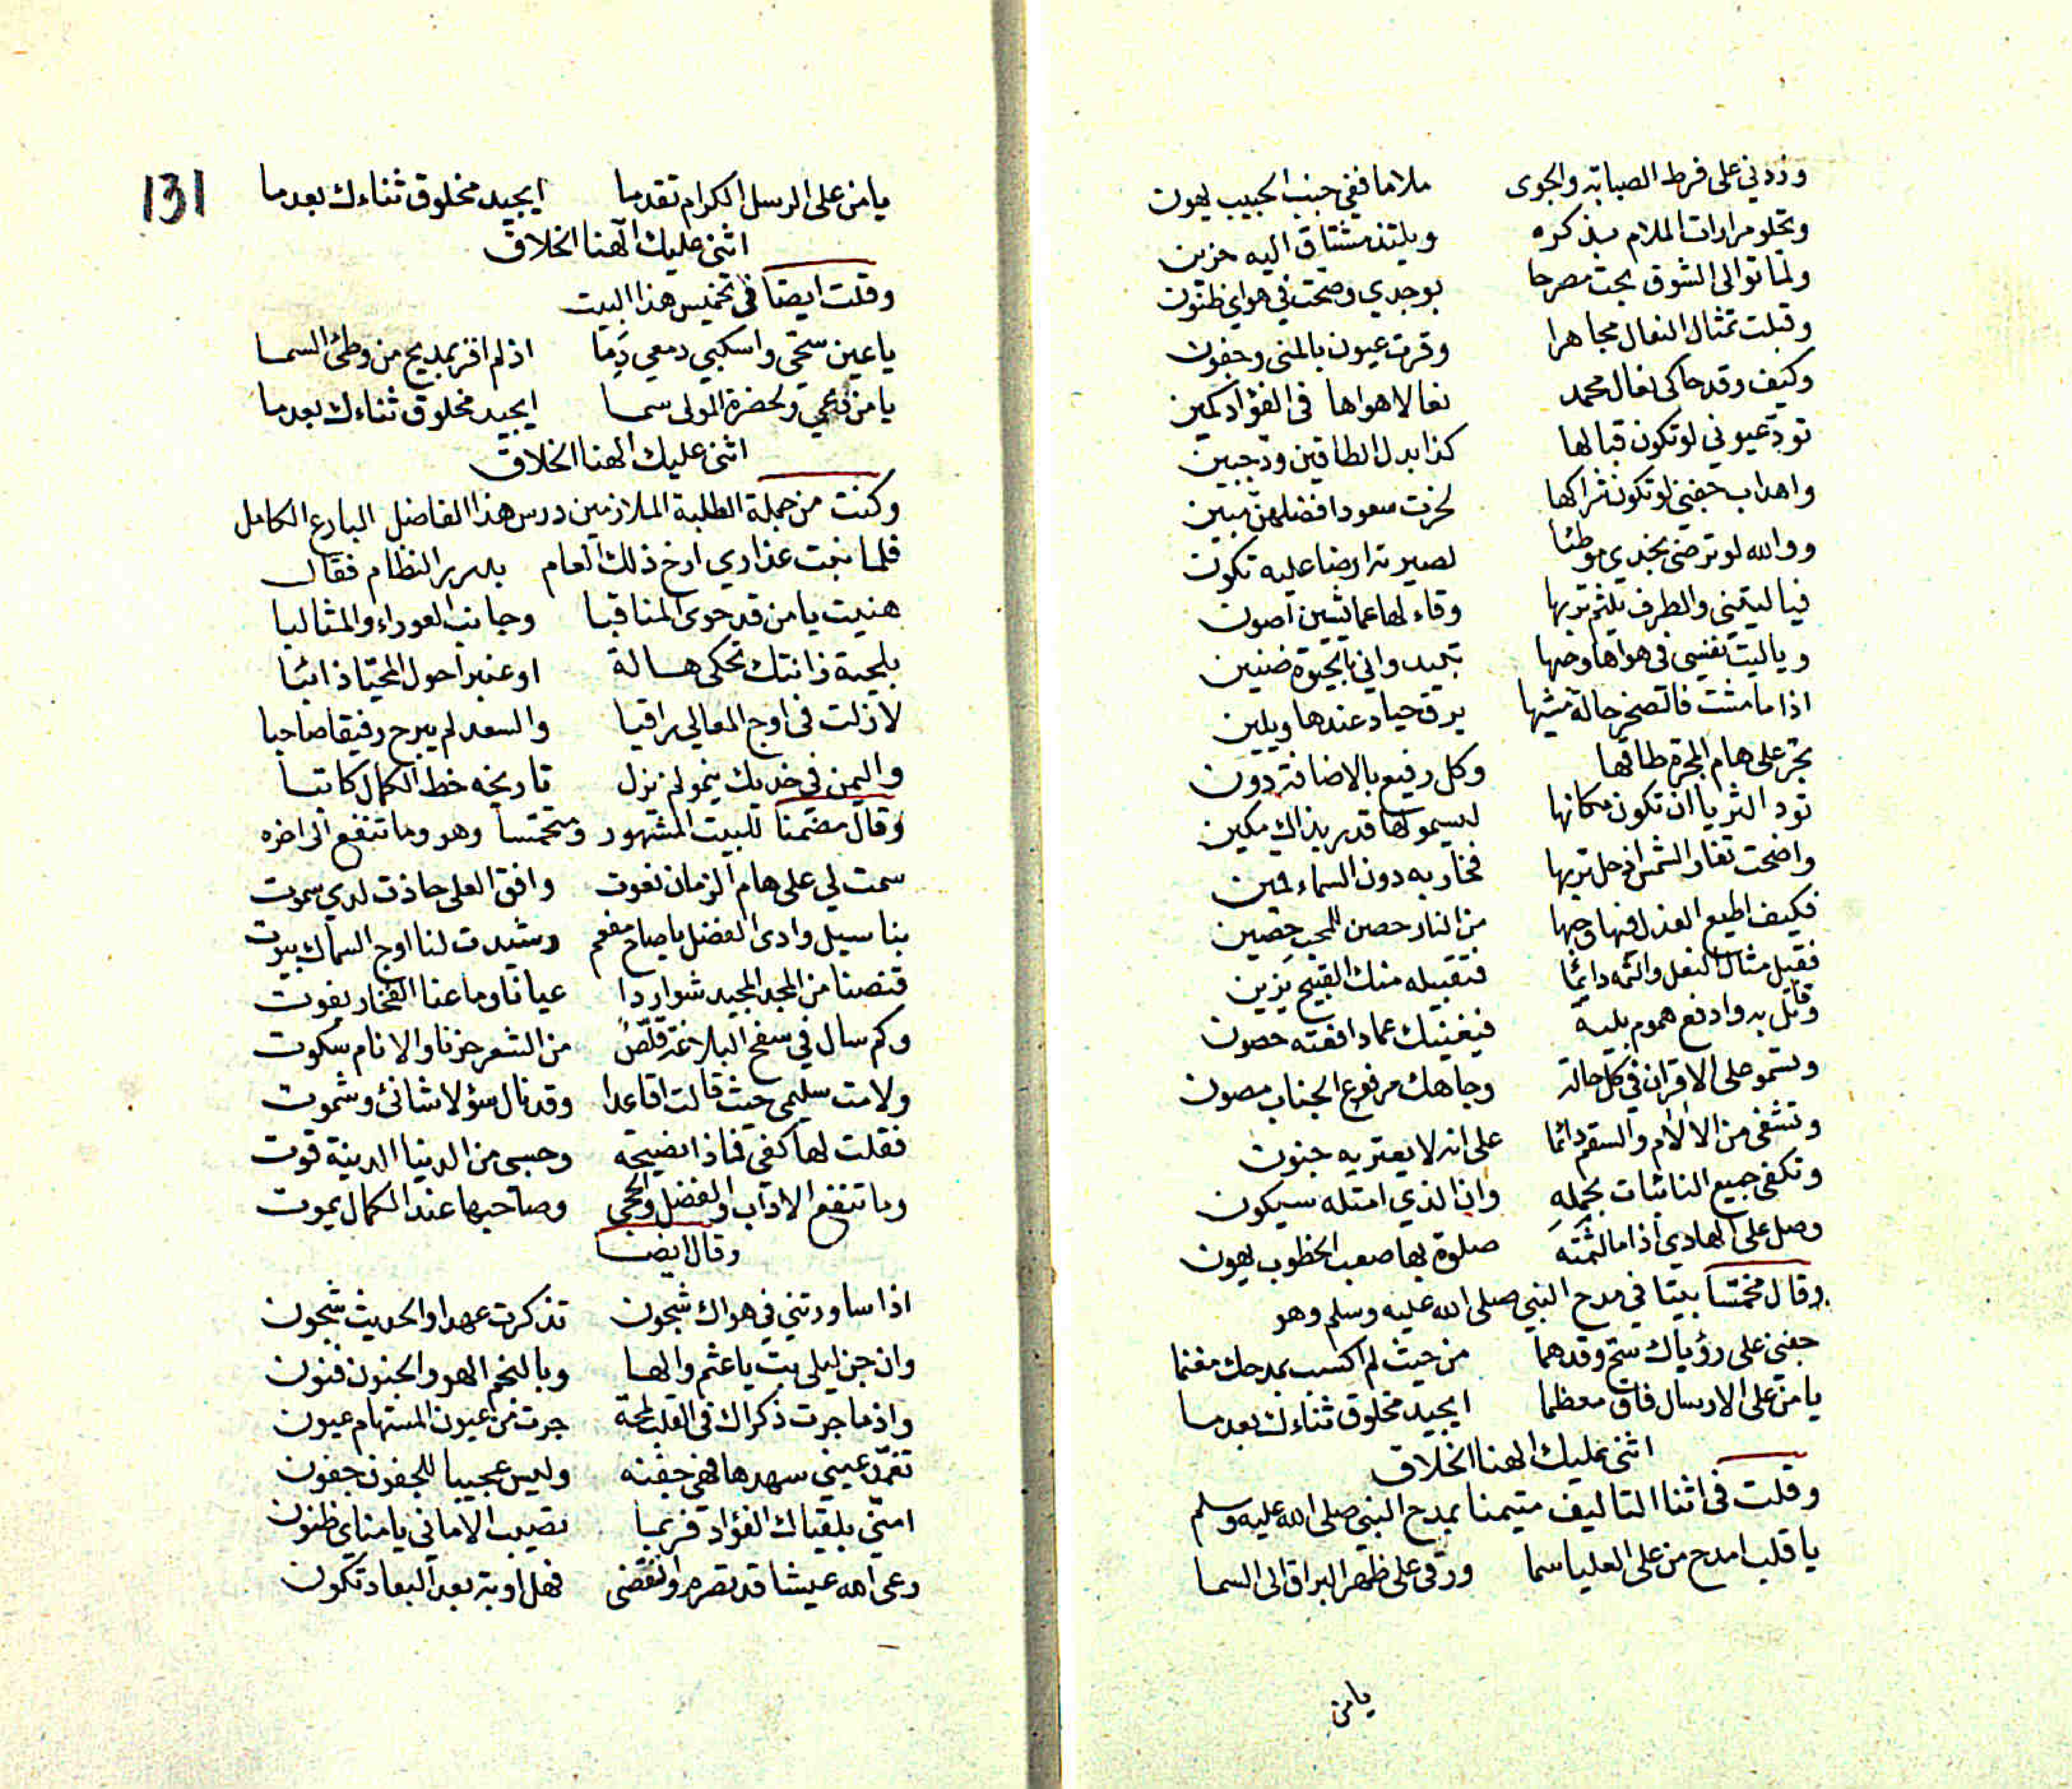 وزدني على فرط الصبابة والجوى ملاما ففي جنب الحبيب يهون
وتحلو مرارات الملام بذكره ويلتذ مشتاق اليه حزين
ولما توالى الشوق بحت مصرحا بوجدي وصحت في هواي ظنون
وقبلت تمثال النعال مجاهرا وقرت عيون بالمنى وجفون
وكيف وقد حاكى نعال محمد نعالا هواها في الفؤاد كمين
تود عيوني لو تكون قبالها كذا بدل الطاقين ود جبين
واهداب جفني لو تكون شراكها لحزت سعودا فضلهن مبين
ووالله لو ترضى بخدي موطئا لصيرته ارضا عليه تكون
فيا ليتني والطرف يلثم تربها وقاء لها عما يشين اصون
ويا ليت نفسي في هواها وحبها تبيد واني بالحيوة ضنين
اذا ما مشت فالصخر حالة مشيها يرق حياء عندها ويلين
تجر على هام المجرة طاقها وكل رفيع بالاضافة دون
تود الثريا ان تكون مكانها ليسمو لها قدر بذاك مكين
واضحت تغار الشمس اذ حل تربها فخار به دون السماء قمين
فكيف اطيع العذل فيها وحبها من النار حصن للمحب حصين
فقبل مثال النعل والثمه دائما فتقبيله منك القبيح يزين
وقل به وادفع هموم بلية فيغنيك عما دافعته حصون
وتسمو على الاقران في كل حالة وجاهك مرفوع الجناب مصون
وتشفى من الالام والسقم دائما على انه لا يعتريه جنون
وتكفى جميع النائبات بحمله وان الذي امتله سيكون
وصل على الهادي اذا ما لثمته صلوة بها صعب الخطوب يهون
وقال مخمسا بيتا في مدح النبي صلى الله عليه وسلم وهو
جفني على رؤياك سح وقد هما من حيث لم اكسب بمدحك مغنما
يا من على الارسال فاق معظما ايجيد مخلوق ثناءك بعد ما
اثنى عليك الهنا الخلاق
وقلت في اثنا التاليف متيمنا بمدح النبي صلى الله عليه وسلم
يا قلب امدح من على العليا سما ورقى على ظهر البراق الى السما
يا من
131
يا من على الرسل الكرام تقدما ايجيد مخلوق ثناءك بعد ما
اثنى عليك الهنا الخلاق
وقلت ايضا في تخميس هذا البيت
يا عين سحي واسكبي دمعي دما اذ لم افز بمديح من وطئ السما
يا من دعي ولحضرة المولى سما ايجيد مخلوق ثناءك بعد ما
اثنى عليك الهنا الخلاق
وكنت من جملة الطلبة الملازمين درس هذا الفاضل البارع الكامل
فلما نبت عذاري ارخ ذلك العام بدرر النظام فقال
هنيت يا من قد حوى المناقبا وجانب العوراء والمثالبا
بلحية زانتك تحكي هالة او عنبر احول المحيا ذائبا
لا زلت في اوج المعالي راقيا والسعد لم يبرح رفيقا صاحبا
واليمن في خديك ينمو لم نزل تاريخه خط الكمال كاتبا
وقال مضمنا للبيت المشهور ومتحمسا وهو وما تنفع الى اخره
سمت لي على هام الزمان نعوت وافق العلى حاذت لدي سموت
بنا سيل وادي الفضل يا صاح مفعم وشيدت لنا اوج السماك بيوت
قنصنا من المجد المجيد شواردا عيانا وما عنا الفخار يفوت
وكم سال في سفح البلاغة قلص من الشعر حزنا والانام سكوت
ولامت سليمى حيث قالت اقاعدا وقد نال سؤلا شانئ وشموت
فقلت لها كفي فماذا نضيحه وحسبي من الدنيا الدنية قوت
وما تنفع الاداب والفضل والحجى وصاحبها عند الكمال يموت
وقال ايضا
اذا ساورتني في هواك شجون تذكرت عهدا والحديث شجون
وان جن ليلي بت يا عثم والها وبالنجم الهو والجنون فنون
واذ ما جرت ذكراك في القلب لمحة جرت من عيون المستهام عيون
تغمد عيني سهدها فهي جفنه وليس عجيبا للجفون جفون
امني بلقياك الفؤاد فربما تصيب الاماني يا مناي ظنون
رعى الله عيشا قد تصرم وانقضى فهل اوبة بعد البعاد تكون